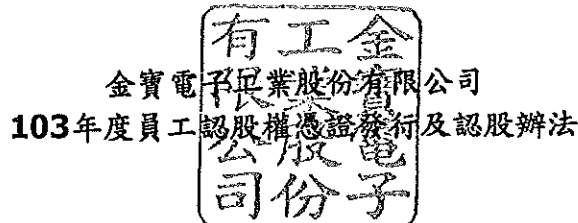 金寶電子工業股份有限公司
103年度員工認股權憑證發行及認股辦法
金寶電子
工業股份
有限公司